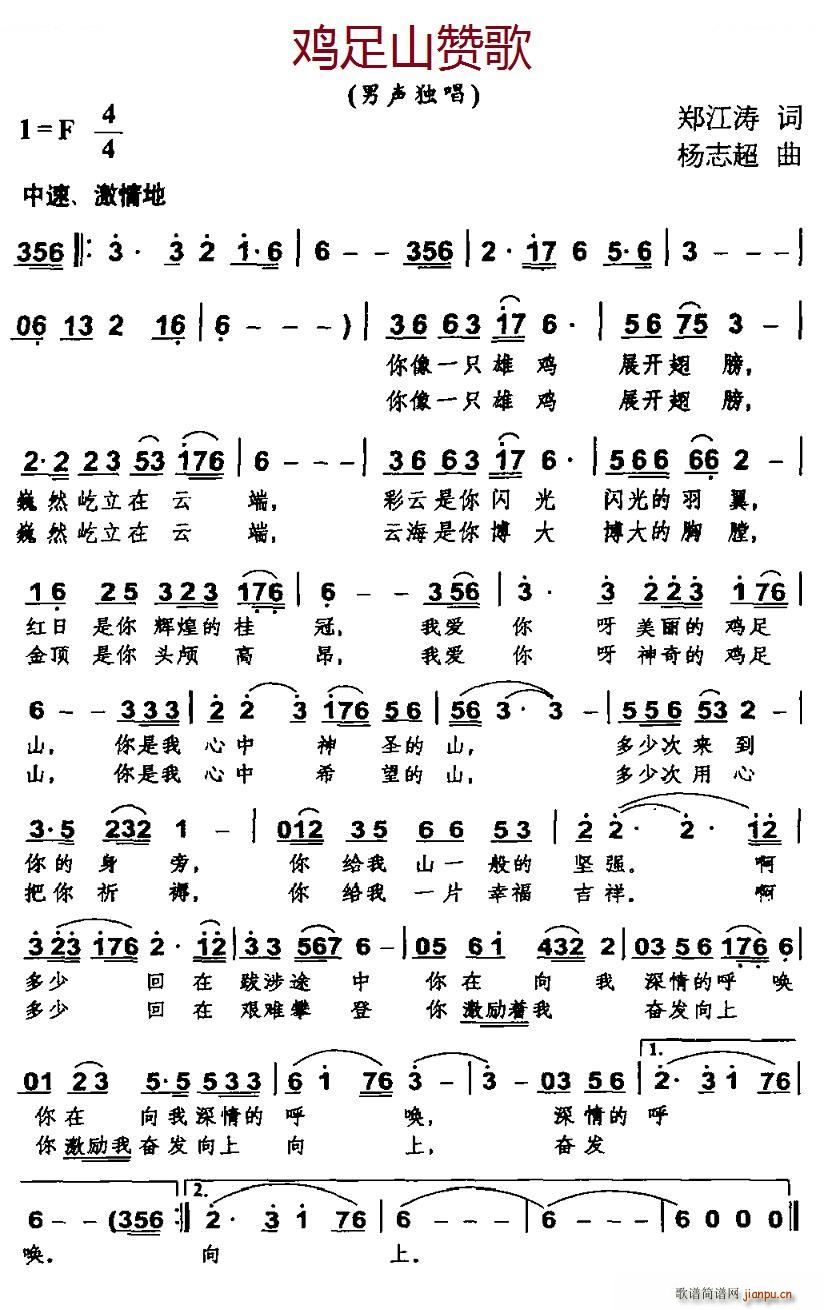 鸡足山赞歌
(男声独唱)
1=F 4/4
郑江涛 词
杨志超 曲
中速、激情地
356 ‖: 3· 3 2 1·6 | 6 - - 356 | 2· 17 6 5·6 | 3 - - |
06 13 2 16 | 6 - - - ) | 36 63 17 6· | 56 75 3 - |
你像一只雄鸡 展开翅膀,
你像一只雄鸡 展开翅膀,
2·2 23 53 176 | 6 - - - | 36 63 17 6· | 566 66 2 - |
巍然屹立在云端, 彩云是你闪光 闪光的羽翼,
巍然屹立在云端, 云海是你博大 博大的胸膛,
16 25 323 176 | 6 - - 356 | 3· 3 223 176 |
红日是你辉煌的桂冠, 我爱你呀美丽的鸡足
金顶是你头颅高昂, 我爱你呀神奇的鸡足
6 - - 333 | 2 2 3 176 56 | 56 3· 3 - | 556 53 2 - |
山, 你是我心中神圣的山, 多少次来到
山, 你是我心中希望的山, 多少次用心
3·5 232 1 - | 012 35 66 53 | 2 2· 2· 12 |
你的身旁, 你给我山一般的坚强. 啊
把你祈祷, 你给我一片幸福吉祥. 啊
3 23 176 2· 12 | 33 567 6 - | 05 61 432 2 | 03 56 176 6 |
多少回在跋涉途中 你在向我 深情的呼唤
多少回在艰难攀登 你激励着我 奋发向上
01 23 5·5 533 | 6 1 76 3 - | 3 - 03 56 | 1. 2· 3 1 76 |
你在向我深情的呼唤, 深情的呼
你激励我奋发向上向上, 奋发
6 - - (356 :‖ 2. 2· 3 1 76 | 6 - - - | 6 - - - | 6 0 0 0 ‖
唤. 向上.
歌谱简谱网 jianpu.cn